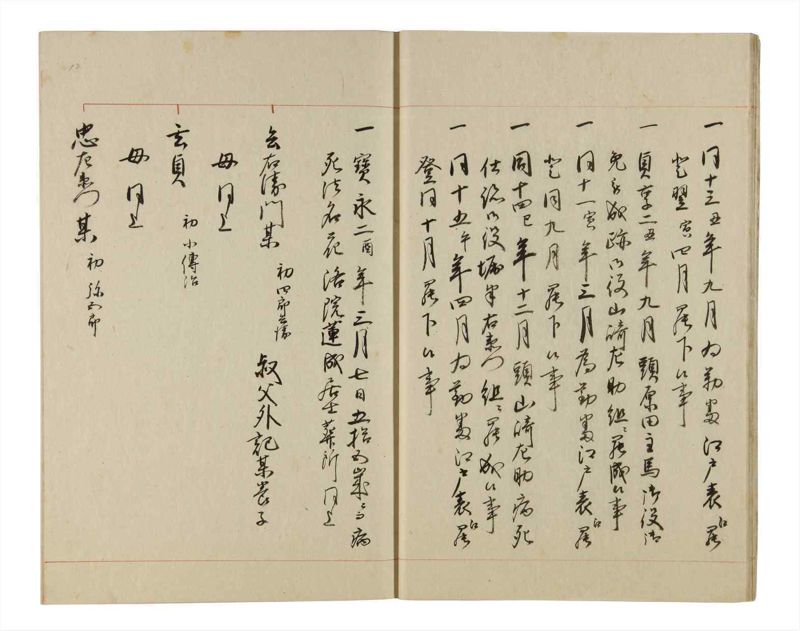 一 同十三丑年九月為勤番江戸表江罷
登翌寅四月罷下候事
一 貞享二丑年九月頭原田主馬御役御
免 跡御役山崎左助組ニ罷成候事
一 同十一寅年三月為勤番江戸表江罷
登同九月罷下候事
一 同十四巳年十二月頭山崎左助病死
仕 御役堀半右衛門組ニ罷成候事
一 同十五午年四月為勤番江戸表江罷
登同十月罷下候事
一 寶永二酉年三月七日五拾五歳ニ而病
死法名花洛院蓮成居士葬所同上
叔父外記某養子
右衛門某 初四郎兵衛
母同上
玄貞 初小傳治
母同上
忠左衛門某 初弥五郎